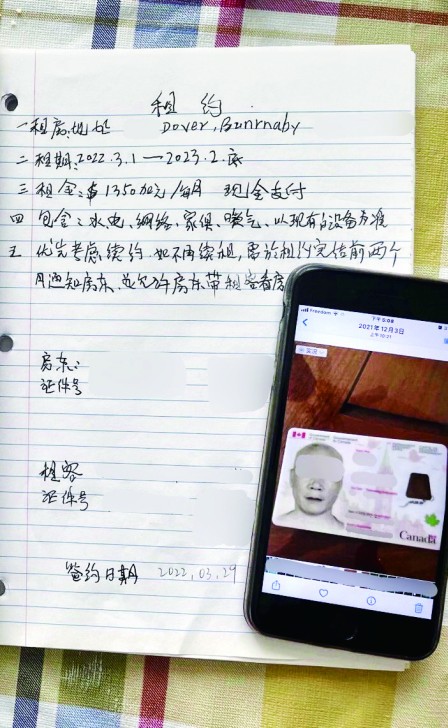 租约
一 租房地址 Dover, Bunrnaby
二 租期:2022.3.1—2023.2.底
三 租金:$1350加元/每月 现金支付
四 包含:水电、网络、家俱、暖气、以现有的设备为准
五 优先考虑续约.如不再续租,需於租约完结前两个
月通知房东,並允许房东带租客看房
房东:
证件号
租客
证件号
签约日期 2022.03.29
Freedom
下午5:08
2021年12月3日
上午10:21
实况
Canada